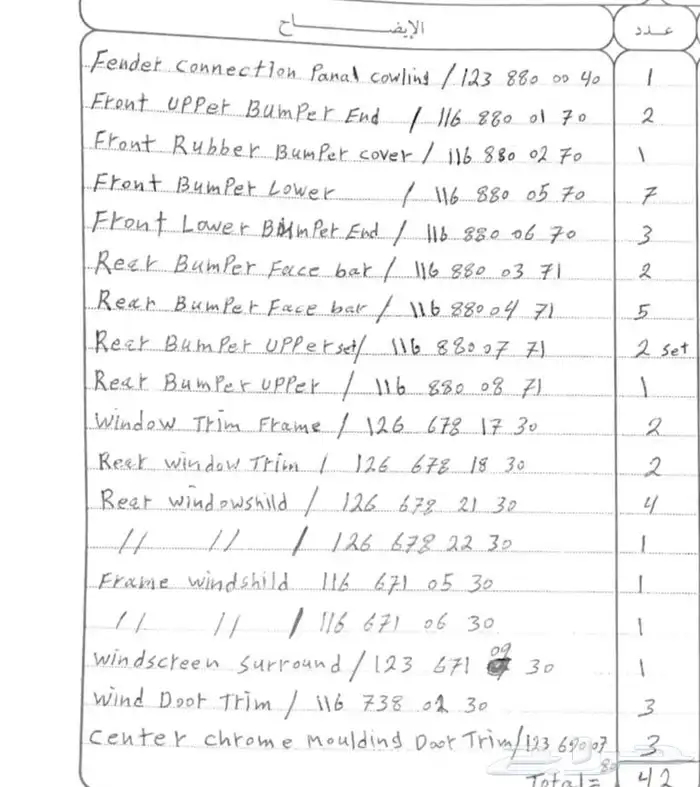 الإيضــــــــاح عـدد
Fender Connection Panal cowling / 123 880 00 40 1
Front UPPer BumPer End / 116 880 01 70 2
Front Rubber BumPer cover / 116 880 02 70 1
Front BumPer Lower / 116 880 05 70 7
Front Lower BumPer End / 116 880 06 70 3
Rear BumPer Face bar / 116 880 03 71 2
Rear BumPer Face bar / 116 880 04 71 5
Rear BumPer UPPer set/ 116 880 07 71 2 set
Rear BumPer UPPer / 116 880 08 71 1
Window Trim Frame / 126 678 17 30 2
Rear window Trim / 126 678 18 30 2
Rear windowshild / 126 678 21 30 4
// // / 126 678 22 30 1
Frame windshild 116 671 05 30 1
// // / 116 671 06 30 1
windscreen Surround / 123 671 09 30 1
Wind Door Trim / 116 738 02 30 3
Center chrome Moulding Door Trim/123 690 07 80 3
Total = 42